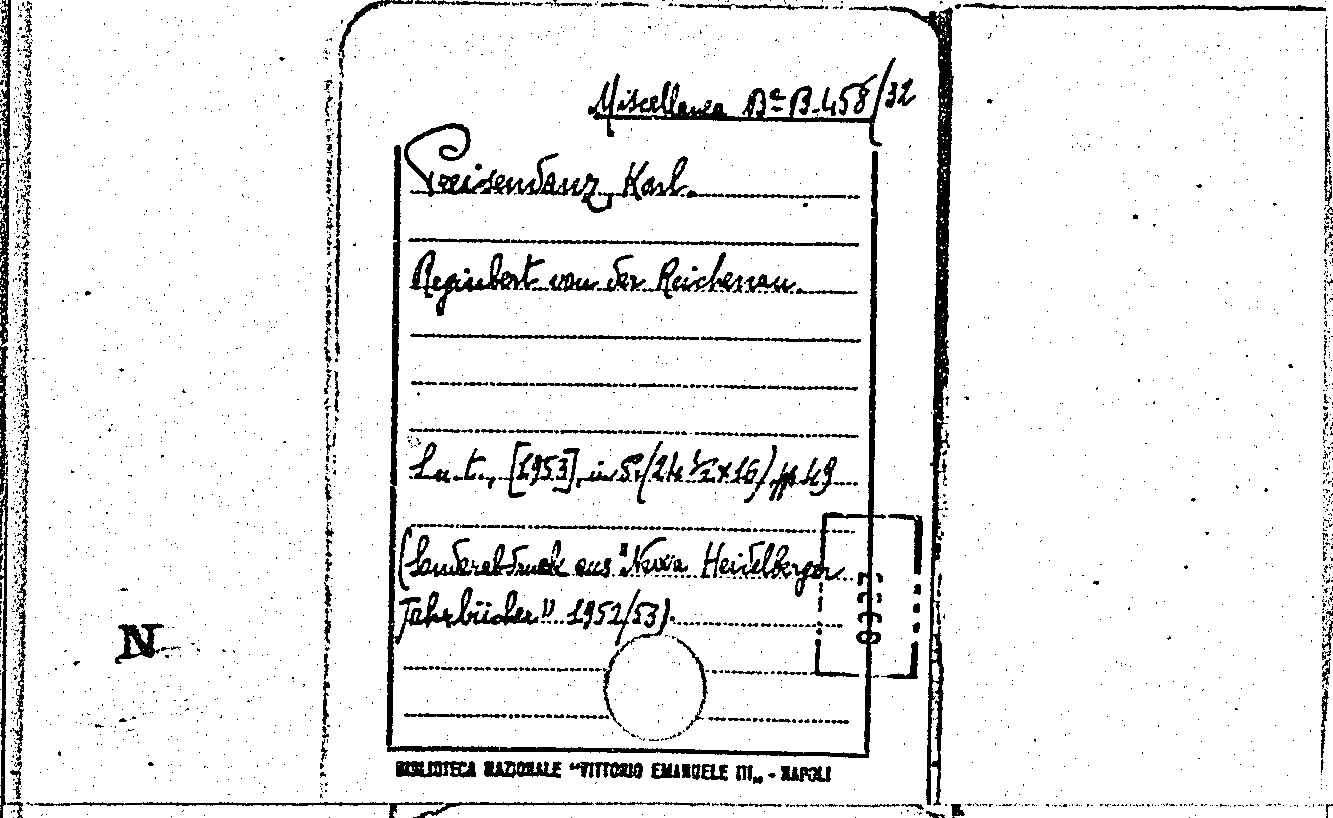 Miscellanea Ba B.458/32
Preisendanz, Karl.
Reginbert von der Reichenau.
s.n.t., [1953], in 8°. (24 ½ x 16) pp. 49
(Sonderabdruck aus "Neue Heidelberger
Jahrbücher" 1952/53).
N
BIBLIOTECA NAZIONALE "VITTORIO EMANUELE III„ - NAPOLI